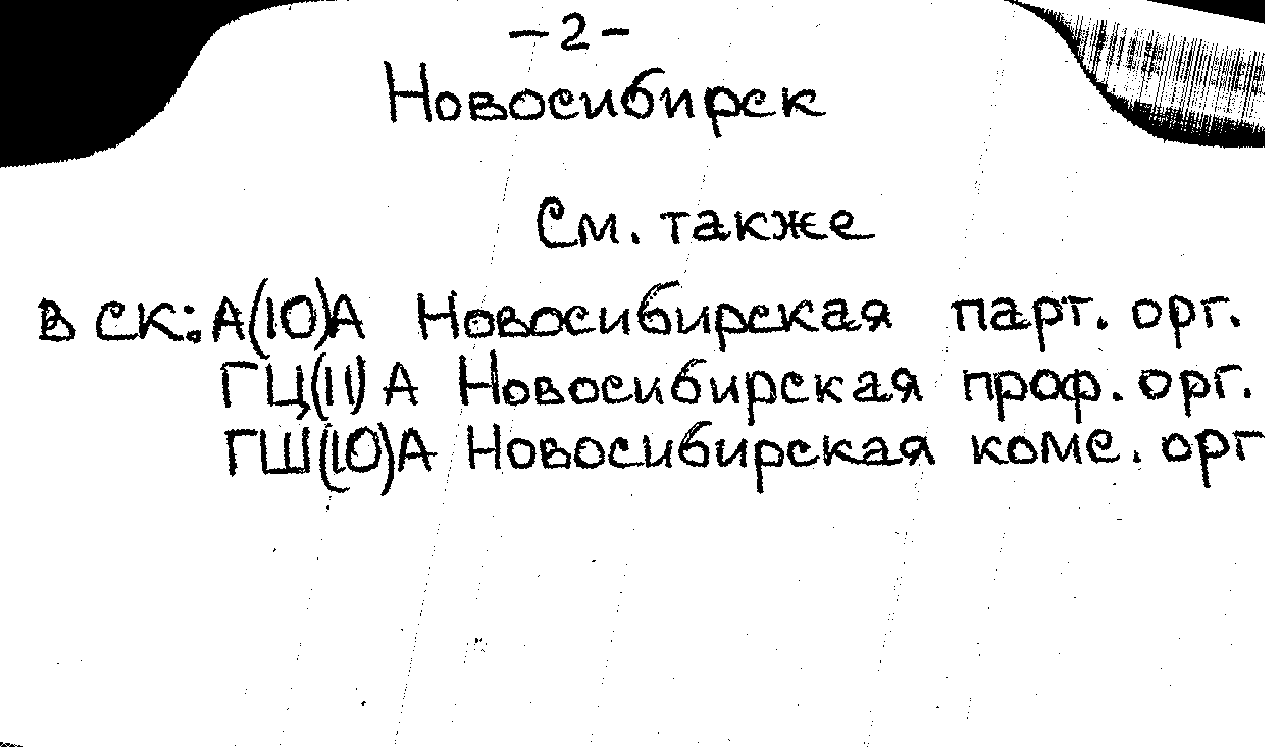 -2-
Новосибирск
См. также
в ск: А(10)А Новосибирская парт. орг.
ГЦ(11)А Новосибирская проф. орг.
ГШ(10)А Новосибирская комс. орг